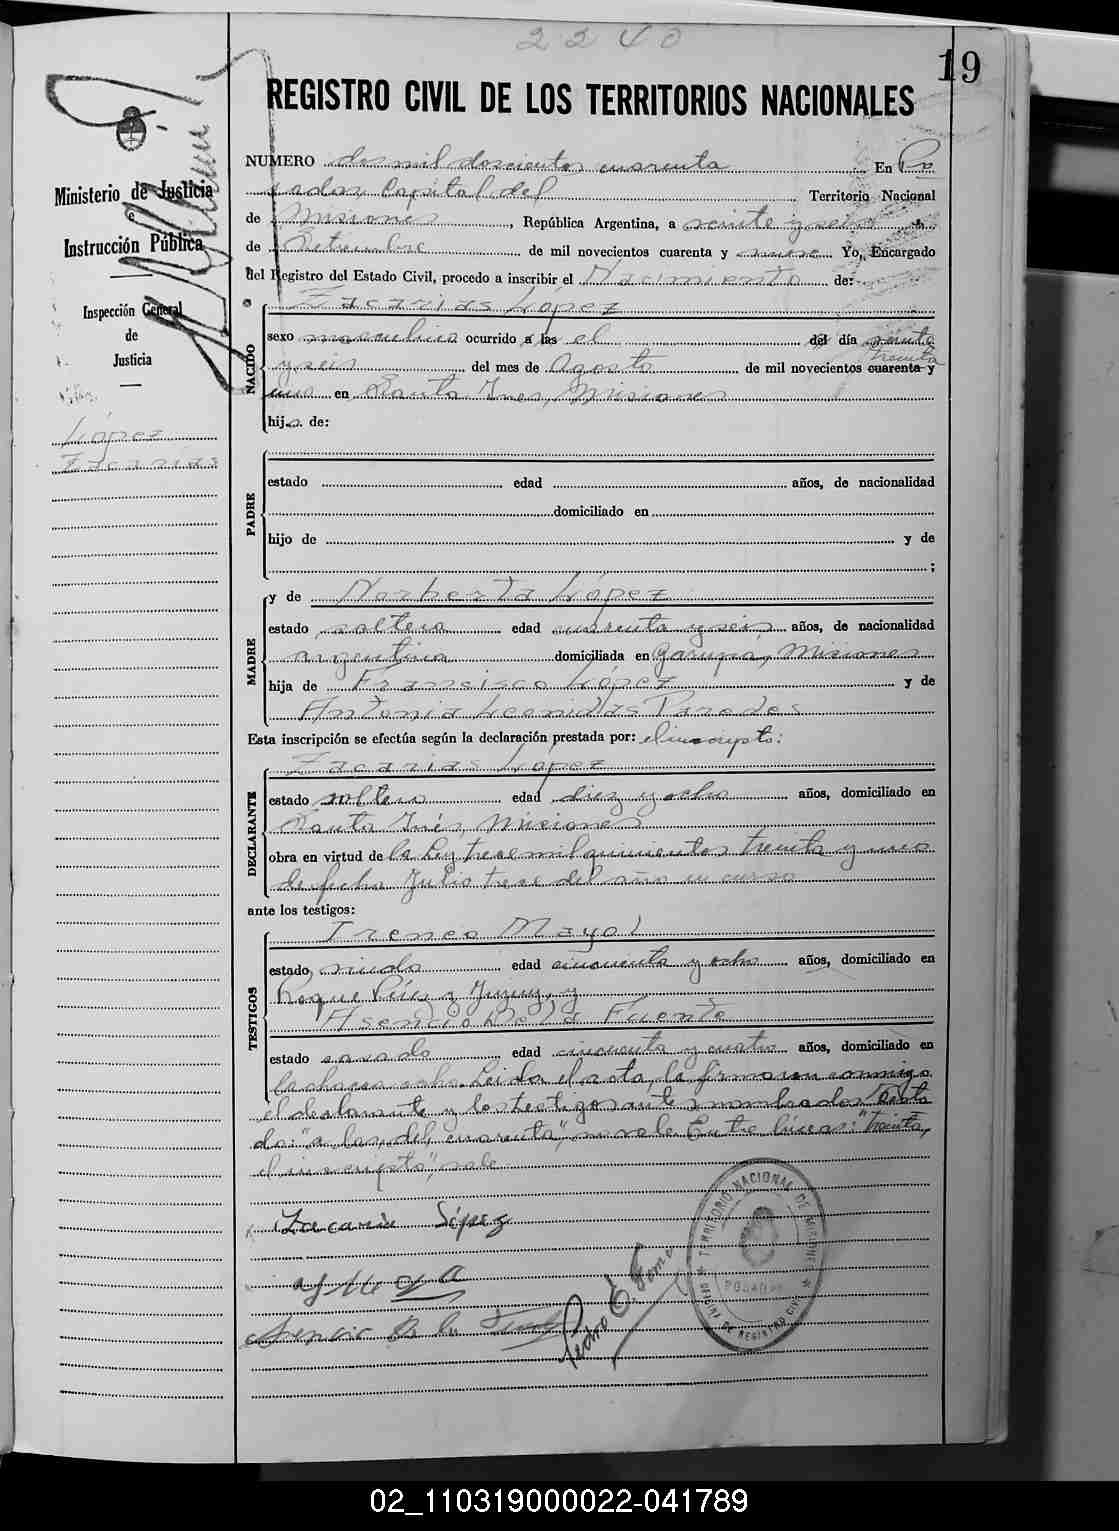 2240
19
REGISTRO CIVIL DE LOS TERRITORIOS NACIONALES
Ministerio de Justicia
e
Instrucción Pública
Inspección General
de
Justicia
López
Zacarias
NUMERO dos mil doscientos cuarenta En Po
sadas, Capital del Territorio Nacional
de Misiones, República Argentina, a veinte y seis de
de Setiembre de mil novecientos cuarenta y nueve Yo, Encargado
del Registro del Estado Civil, procedo a inscribir el Nacimiento de:
NACIDO
Zacarias López
sexo masculino ocurrido a las el del día veinte
treinta
y seis del mes de Agosto de mil novecientos cuarenta y
uno en Santa Ines, Misiones
hijo de:
PADRE
estado edad años, de nacionalidad
domiciliado en
hijo de y de
;
MADRE
y de Norberta López
estado soltera edad cuarenta y seis años, de nacionalidad
argentina domiciliada en Garupá, Misiones
hija de Francisco López y de
Antonia Leonidas Paredes
Esta inscripción se efectúa según la declaración prestada por: el inscripto:
DECLARANTE
Zacarias López
estado soltero edad diez y ocho años, domiciliado en
Santa Inés, Misiones
obra en virtud de la Ley trece mil quinientos treinta y uno
de fecha Julio trece del año en curso
ante los testigos:
TESTIGOS
Ireneo Mayol
estado viudo edad cincuenta y ocho años, domiciliado en
Roque Pérez y Jujuy, y
Asencio De la Fuente
estado casado edad cincuenta y cuatro años, domiciliado en
la chacra ocho. Leida el acta, la firmaron conmigo
el declarante y los testigos ante s nombrados Testa
do: "a las, del, cuarenta", no vale Entre líneas: "treinta,
el inscripto", vale
Zacaria López
Asencio D. la Fuente
Pedro E. Fome
TERRITORIO NACIONAL DE MISIONES
POSADAS
OFICINA DE REGISTRO CIVIL
02_110319000022-041789